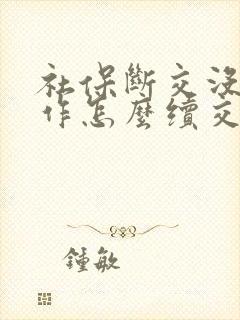 社保斷交沒
作怎麼續交
鍾敏